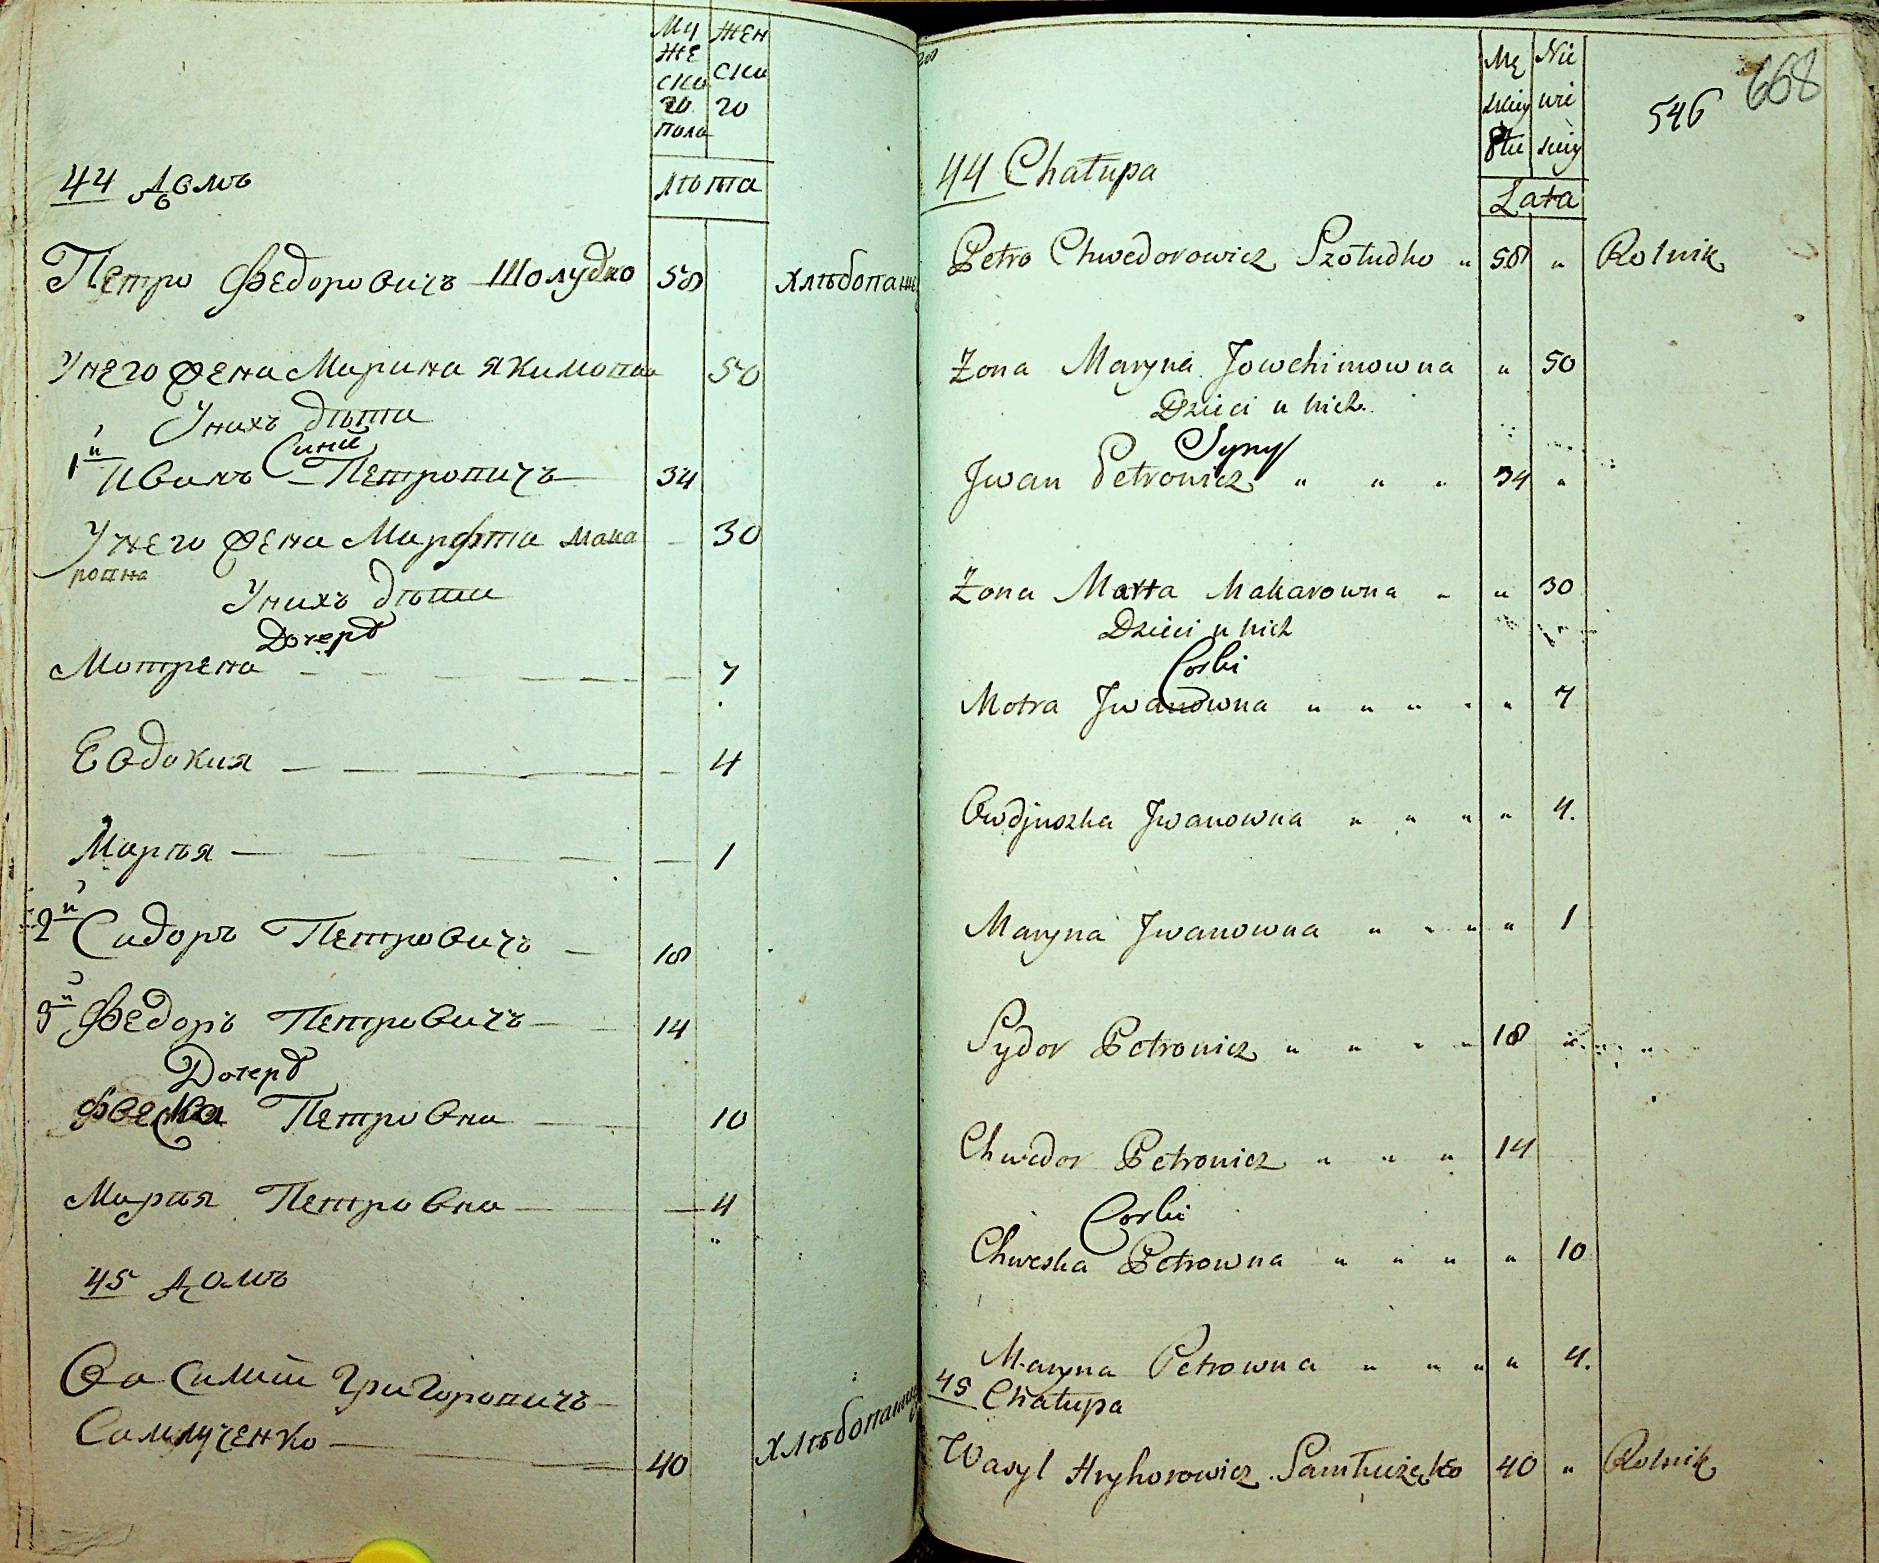 Му Жен
же ска
ска го
го
пола
44 Домъ
лѣта
Петро Федоровичъ Шолудко 58 Хлѣбопашец
У него жена Марина Якимовна 50
У нихъ дѣти
Сини
1й Иванъ Петровичъ 34
У него жена Марфта Мака 30
ровна
У нихъ дѣти
Дочерѣ
Мотрена 7
Евдокия 4
Марья 1
2й Сидоръ Петровичъ 18
3й Федоръ Петровичъ 14
Дочерѣ
Феска Петровна 10
Марья Петровна 4
45 Домъ
Василий Григоровичъ
Самлученко 40 Хлѣбопашец
668
546
Mę Nie
skiey wie
Płci skiey
44 Chałupa
Lata
Petro Chwedorowicz Szołudko " 58 " Rolnik
Żona Maryna Jowchimowna " 50
Dzieci u nich
Syny
Jwan Petrowicz " " " 34 "
Żona Marta Makarowna " " 30
Dzieci u nich
Corki
Motra Jwanowna " " " " " 7
Owdjuszka Jwanowna " " " " 4.
Maryna Jwanowna " " " " 1
Sydor Petrowicz " " " " 18
Chwedor Petrowicz " " " 14
Corki
Chweska Petrowna " " " " 10
Maryna Petrowna " " " " 4.
45 Chałupa
Wasyl Hryhorowicz Samłuczęko 40 " Rolnik